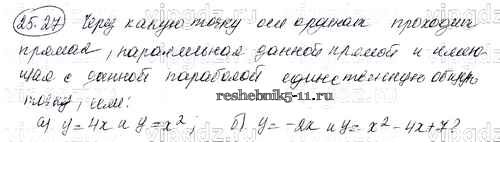 25.27 Через какую точку оси ординат проходит
прямая, параллельная данной прямой и имею-
щая с данной параболой единственную общую
точку, если:
reshebnik5-11.ru
а) y = 4x и y = x²; б) y = -2x и y = x² - 4x + 7?